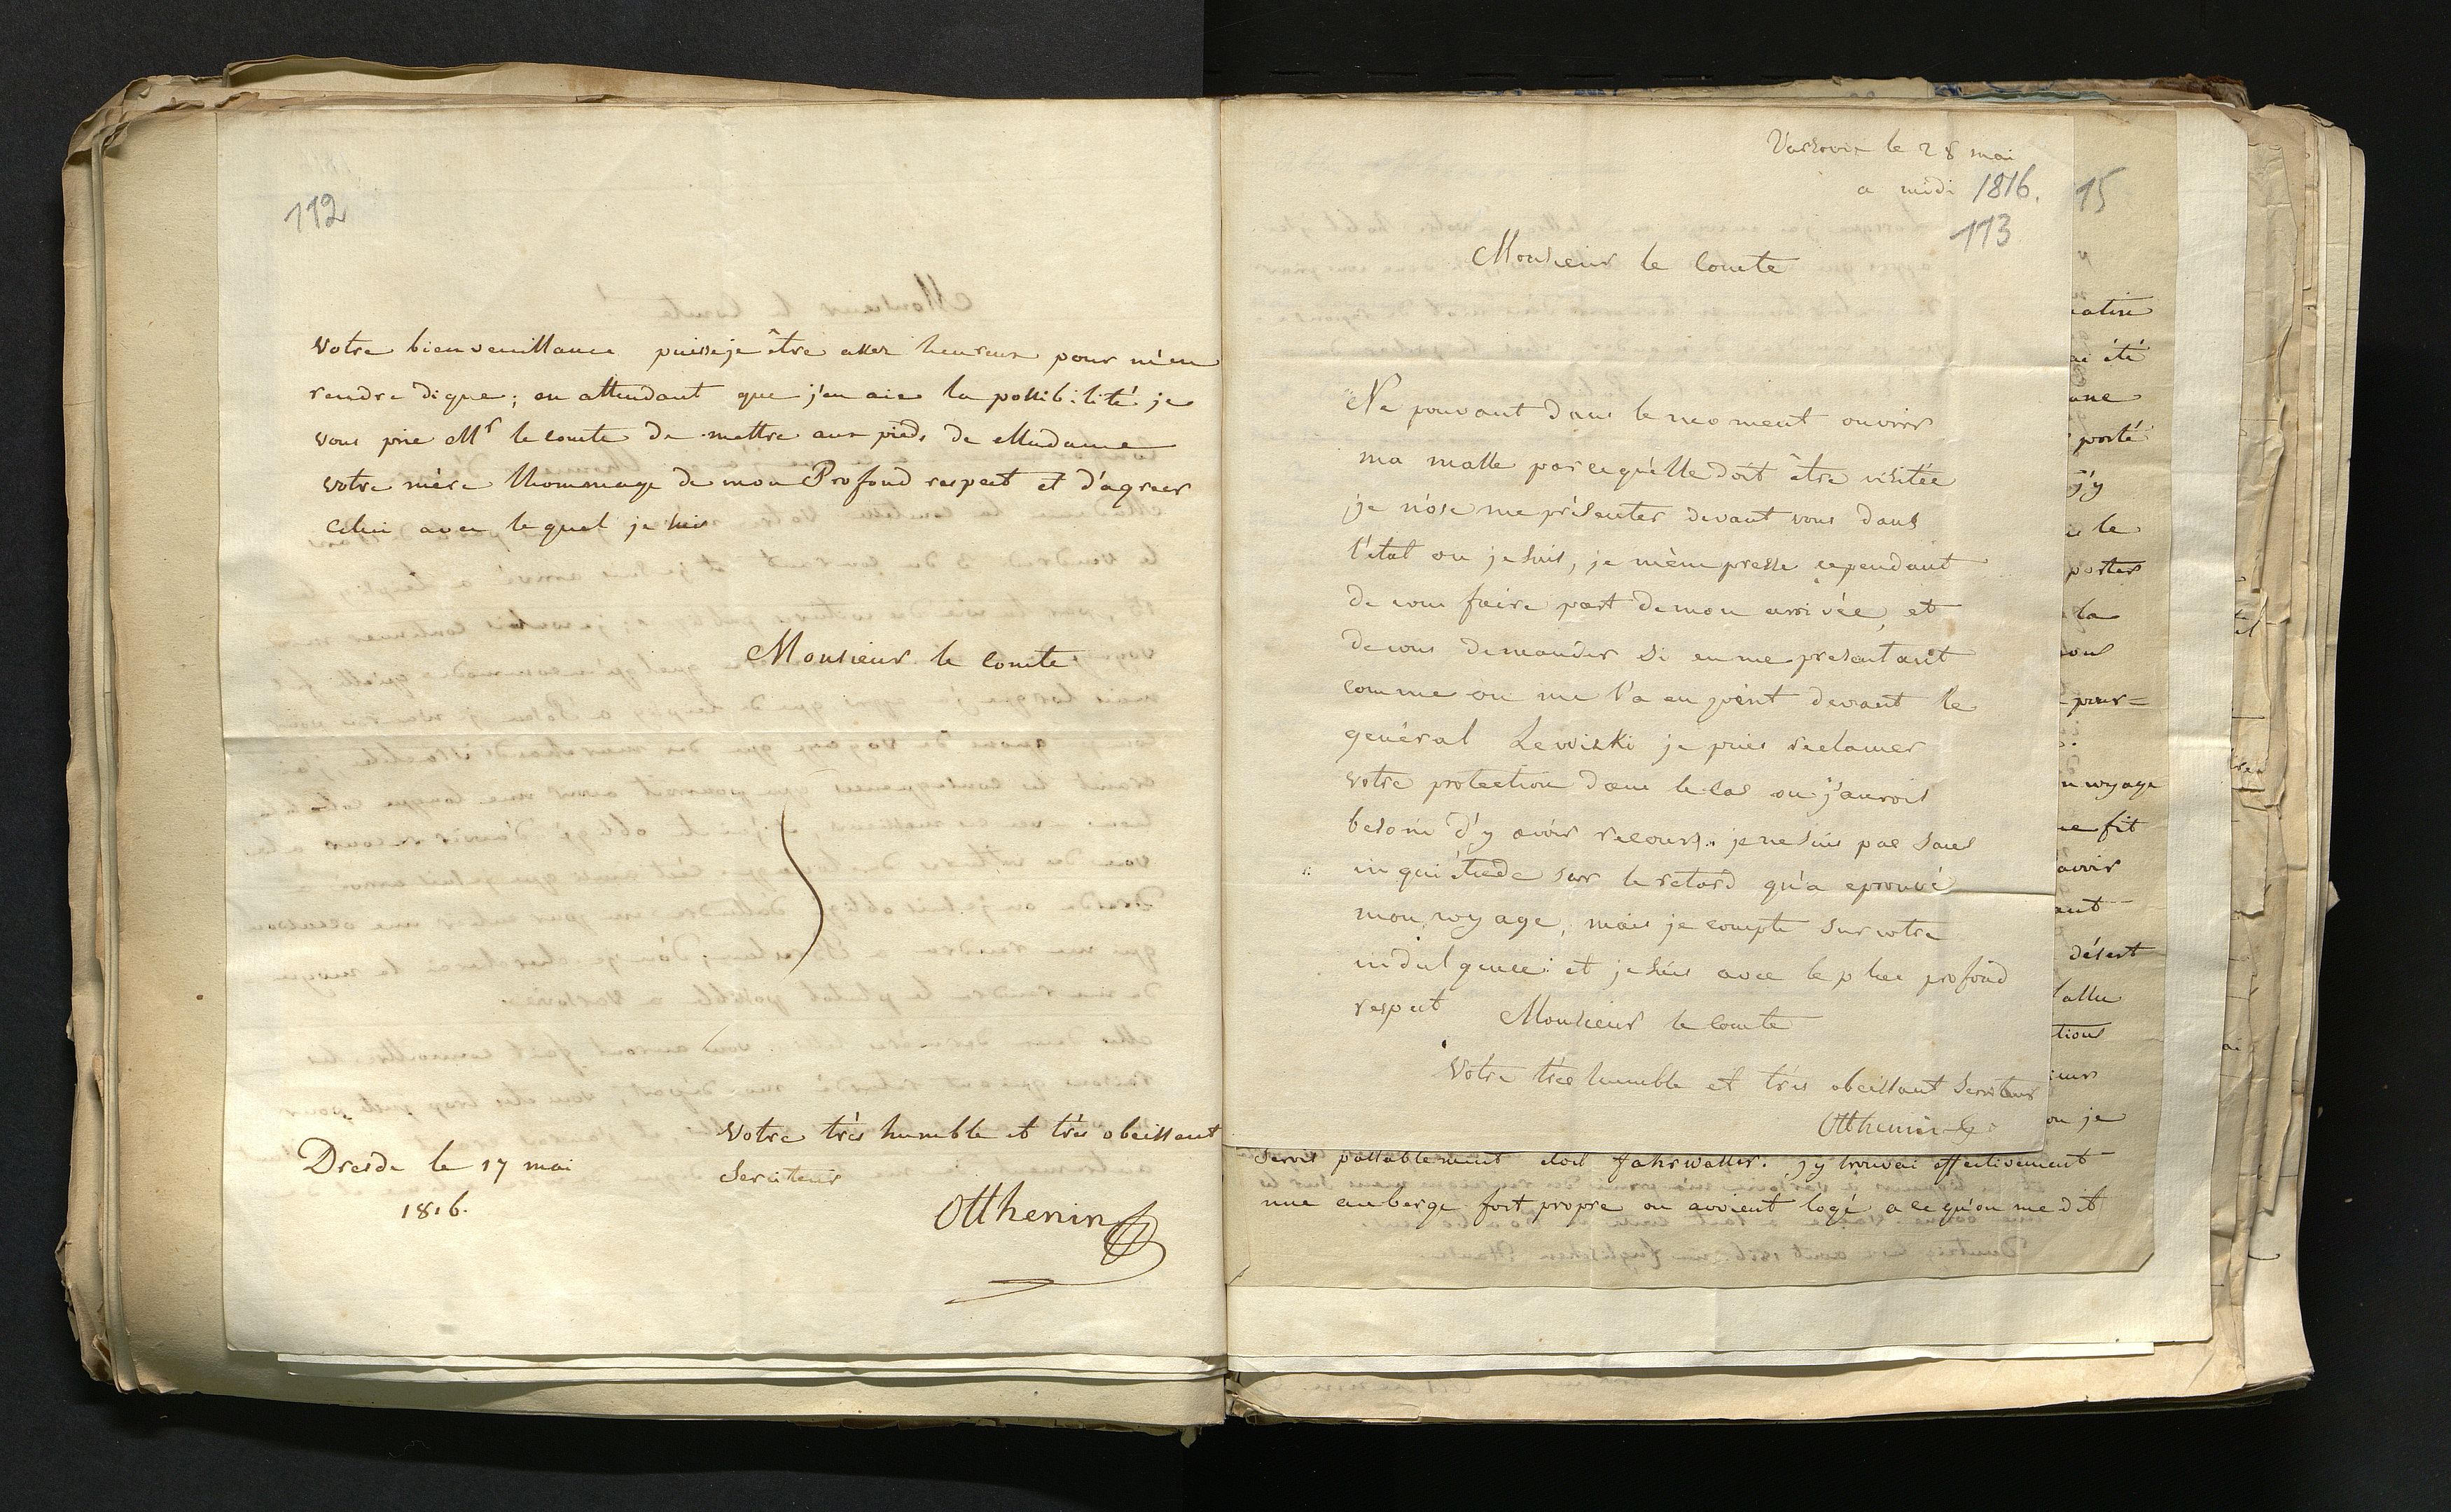 112
votre bienveillance puisseje être assez heureux pour m'en
rendre digne; en attendant que j'en aie la possibilité je
vous prie Mr le comte de mettre aux pieds de Madame
votre mère lhommage de mon Profond respect et d'agréer
celui avec lequel je suis
Monsieur le comte
votre très humble et très obeissant
serviteur
Dresde le 17 mai
1816.
Otthenin
Varsovie le 28 mai
a midi 1816.
113
Monsieur le comte
Ne pouvant dans le moment ouvrir
ma malle parcequ'elle doit être visitée
je n'ose me présenter devant vous dans
l'état ou je suis, je m'empresse cependant
de vous faire part de mon arrivée, et
de vous demander si en me presentant
comme on me l'a enjoint devant le
général Lewiski je puis reclamer
votre protection dans le cas ou j'aurois
besoin d'y avoir recours. je ne suis pas sans
inquiétude sur le retard qu'a eprouvé
mon voyage, mais je compte sur votre
indulgence: et je suis avec le plus profond
respect Monsieur le comte
votre très humble et très obeissant serviteur
Otthenin
15
porté
j'y
le
porter
la
pour=
voyage
fit
avoir
désert
ou je
servir passablement étoit fahrwasser. j'y trouvai effectivement
une auberge fort propre ou avoient logé a ce qu'on me dit